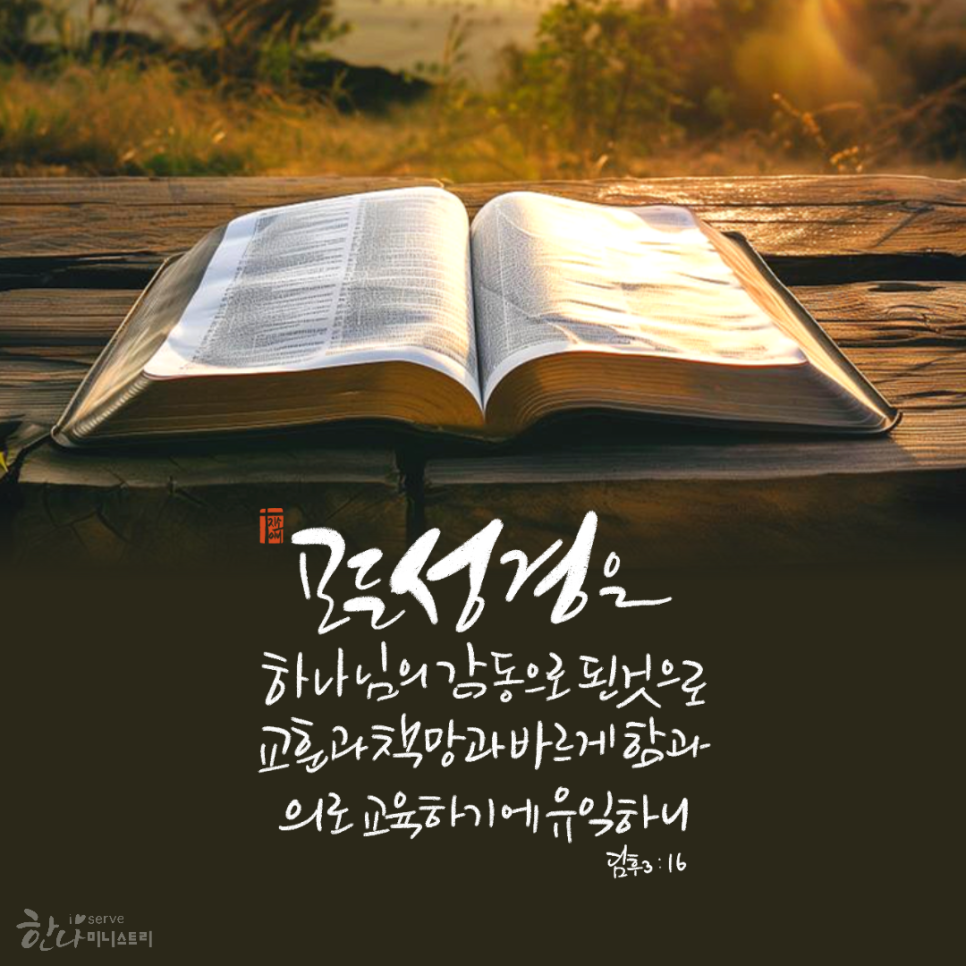 모든성경은
하나님의 감동으로 된것으로
교훈과 책망과 바르게 함과
의로 교육하기에 유익하니
딤후3:16
i serve
한나미니스트리